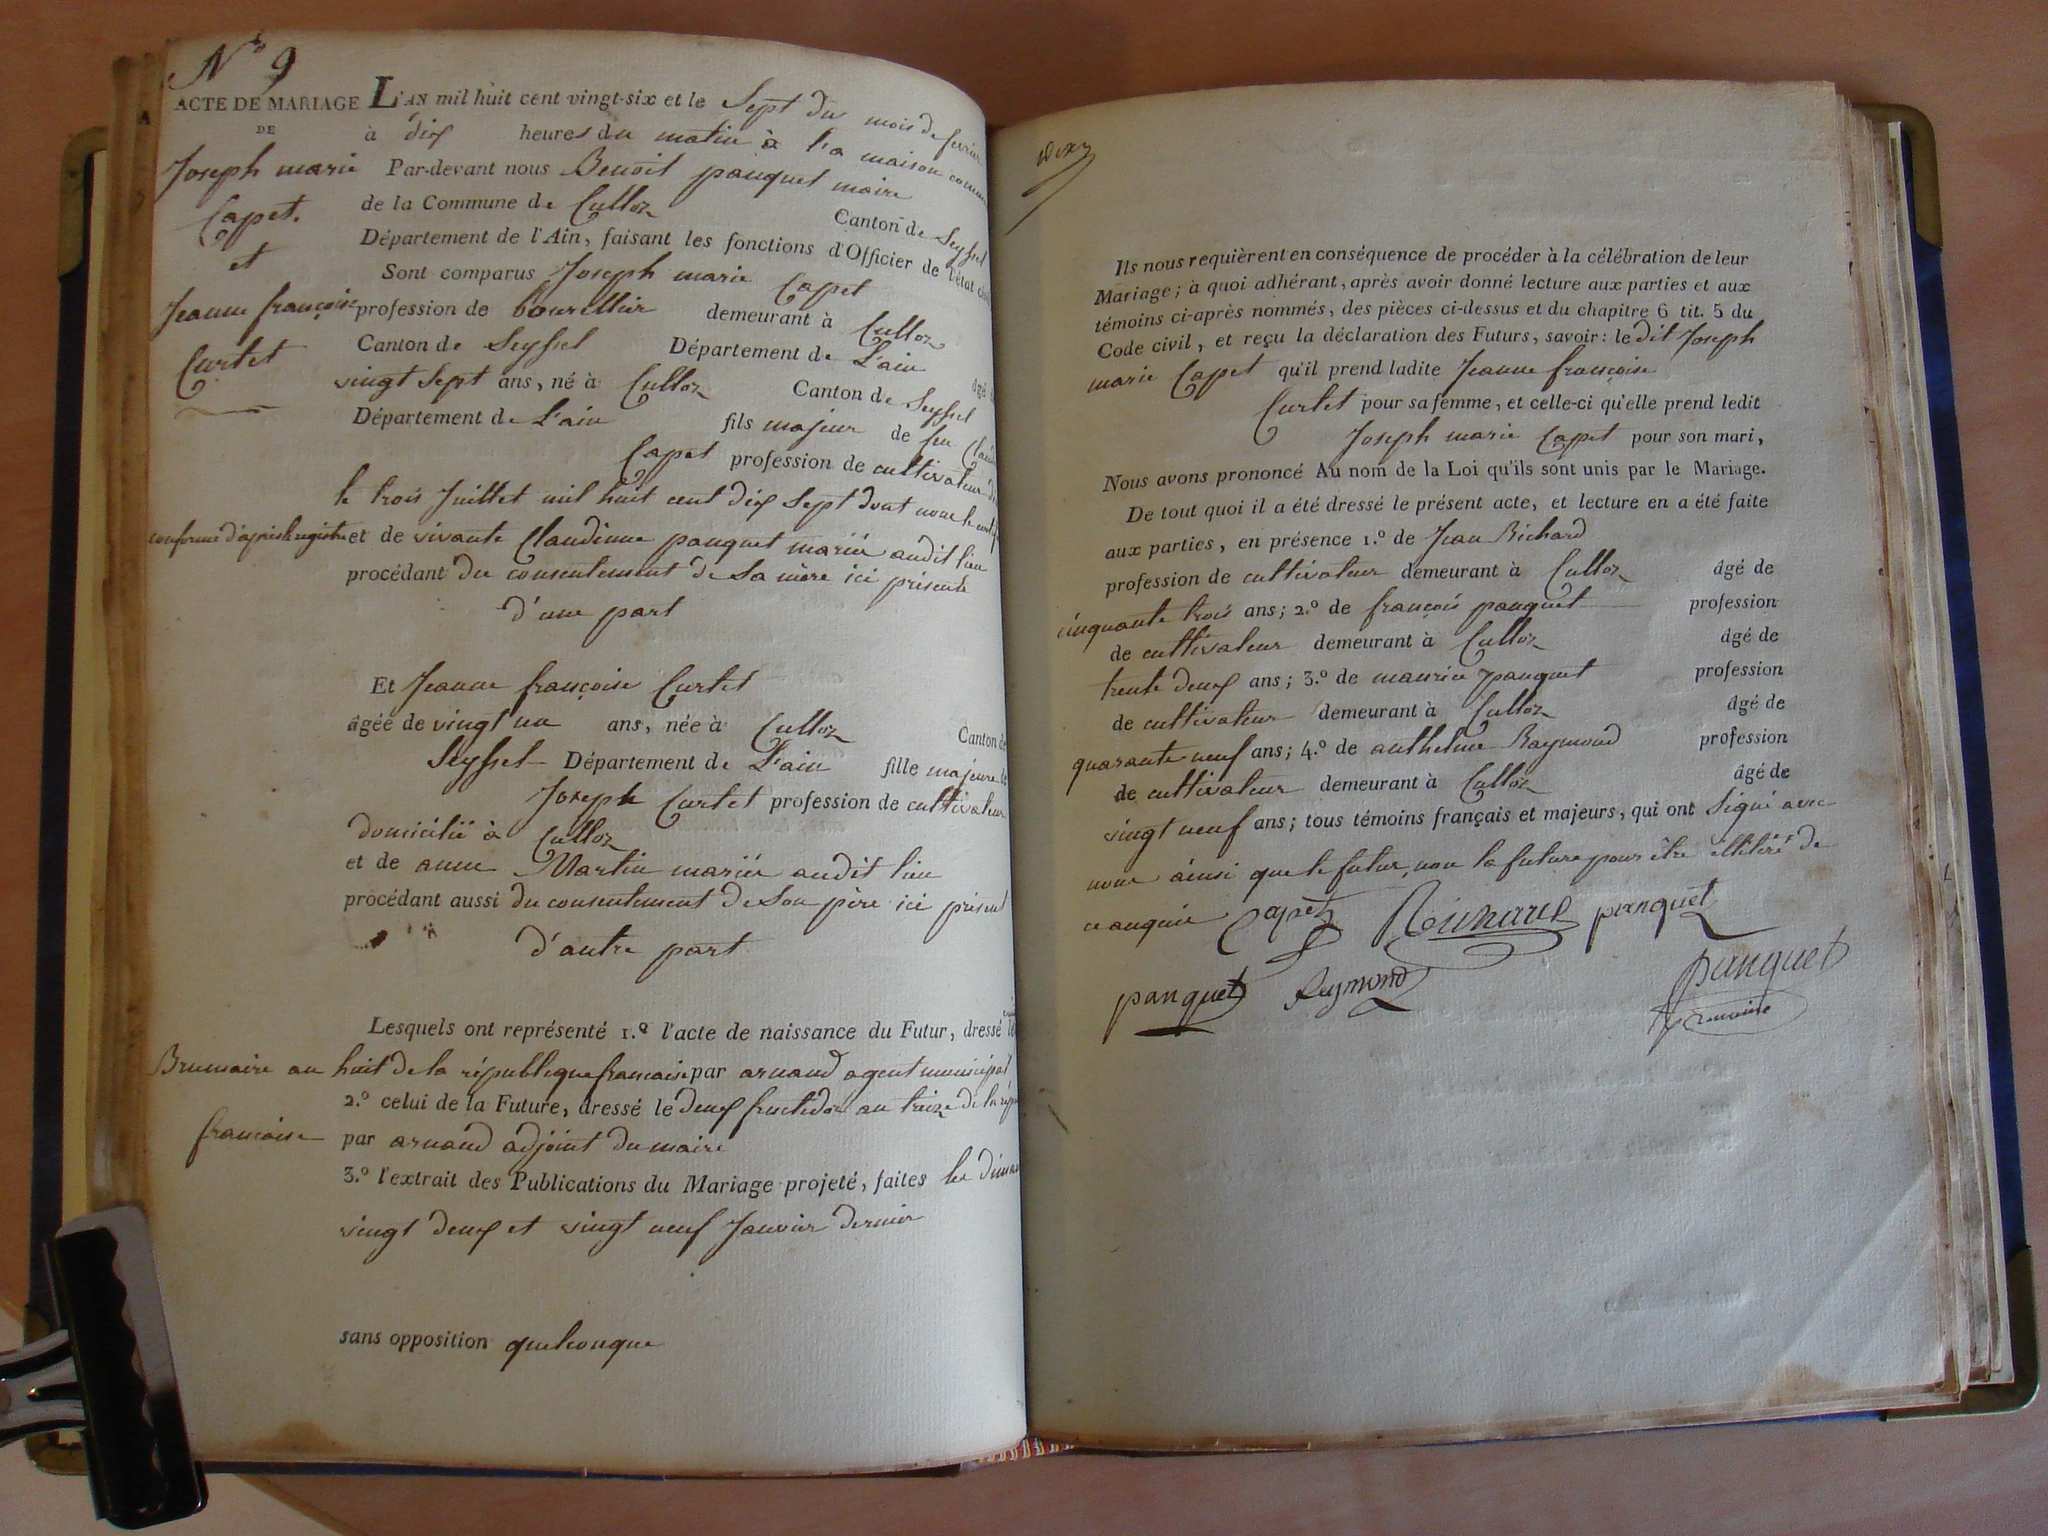 N° 9
ACTE DE MARIAGE
DE
Joseph marie
Capet.
et
Jeanne françoise
Curtet
L'AN mil huit cent vingt-six et le Sept du mois de fevrier
à dix heures du matin à la maison commune
Par-devant nous Benoit panquet maire
de la Commune de Culloz Canton de Seyssel
Département de l'Ain, faisant les fonctions d'Officier de l'état civil
Sont comparus Joseph marie Capet
profession de bourellier demeurant à Culloz
Canton de Seyssel Département de L'ain âgé
vingt Sept ans, né à Culloz Canton de Seyssel
Département de L'ain fils majeur de feu Claude
Capet profession de cultivateur
le trois Juillet mil huit cent dix Sept dont nous le
conforme d'après le registre et de vivante Claudinne panquet mariés audit lieu
procédant du consentement de Sa mère ici présente
d'une part
Et Jeanne françoise Curtet
âgée de vingt un ans, née à Culloz Canton de
Seyssel Département de L'ain fille majeure de
Joseph Curtet profession de cultivateur
domicilié à Culloz
et de anne Martin mariés audit lieu
procédant aussi du consentement de Son père ici présent
d'autre part
Lesquels ont représenté 1.º l'acte de naissance du Futur, dressé le
Brumaire an huit de la république francaise par arnaud agent municipal
2.º celui de la Future, dressé le deux fructidor an treize de la rép
francaise par arnaud adjoint du maire
3.º l'extrait des Publications du Mariage projeté, faites les diman
vingt deux et vingt neuf Janvier dernier
sans opposition quelconque
Ils nous requièrent en conséquence de procéder à la célébration de leur
Mariage; à quoi adhérant, après avoir donné lecture aux parties et aux
témoins ci-après nommés, des pièces ci-dessus et du chapitre 6 tit. 5 du
Code civil, et reçu la déclaration des Futurs, savoir: le dit Joseph
marie Capet qu'il prend ladite Jeanne françoise
Curtet pour sa femme, et celle-ci qu'elle prend ledit
Joseph marie Capet pour son mari,
Nous avons prononcé Au nom de la Loi qu'ils sont unis par le Mariage.
De tout quoi il a été dressé le présent acte, et lecture en a été faite
aux parties, en présence 1.º de Jean Richard
profession de cultivateur demeurant à Culloz âgé de
cinquante trois ans; 2.º de françois panquet profession
de cultivateur demeurant à Culloz âgé de
trente deux ans; 3.º de maurice panquet profession
de cultivateur demeurant à Culloz âgé de
quarante neuf ans; 4.º de anthelme Raymond profession
de cultivateur demeurant à Culloz âgé de
vingt neuf ans; tous témoins français et majeurs, qui ont Signé avec
nous ainsi que le futur, non la future pour être illitéré de
ce enquise Capet Richard panquet
panquet Reymond panquet
maire